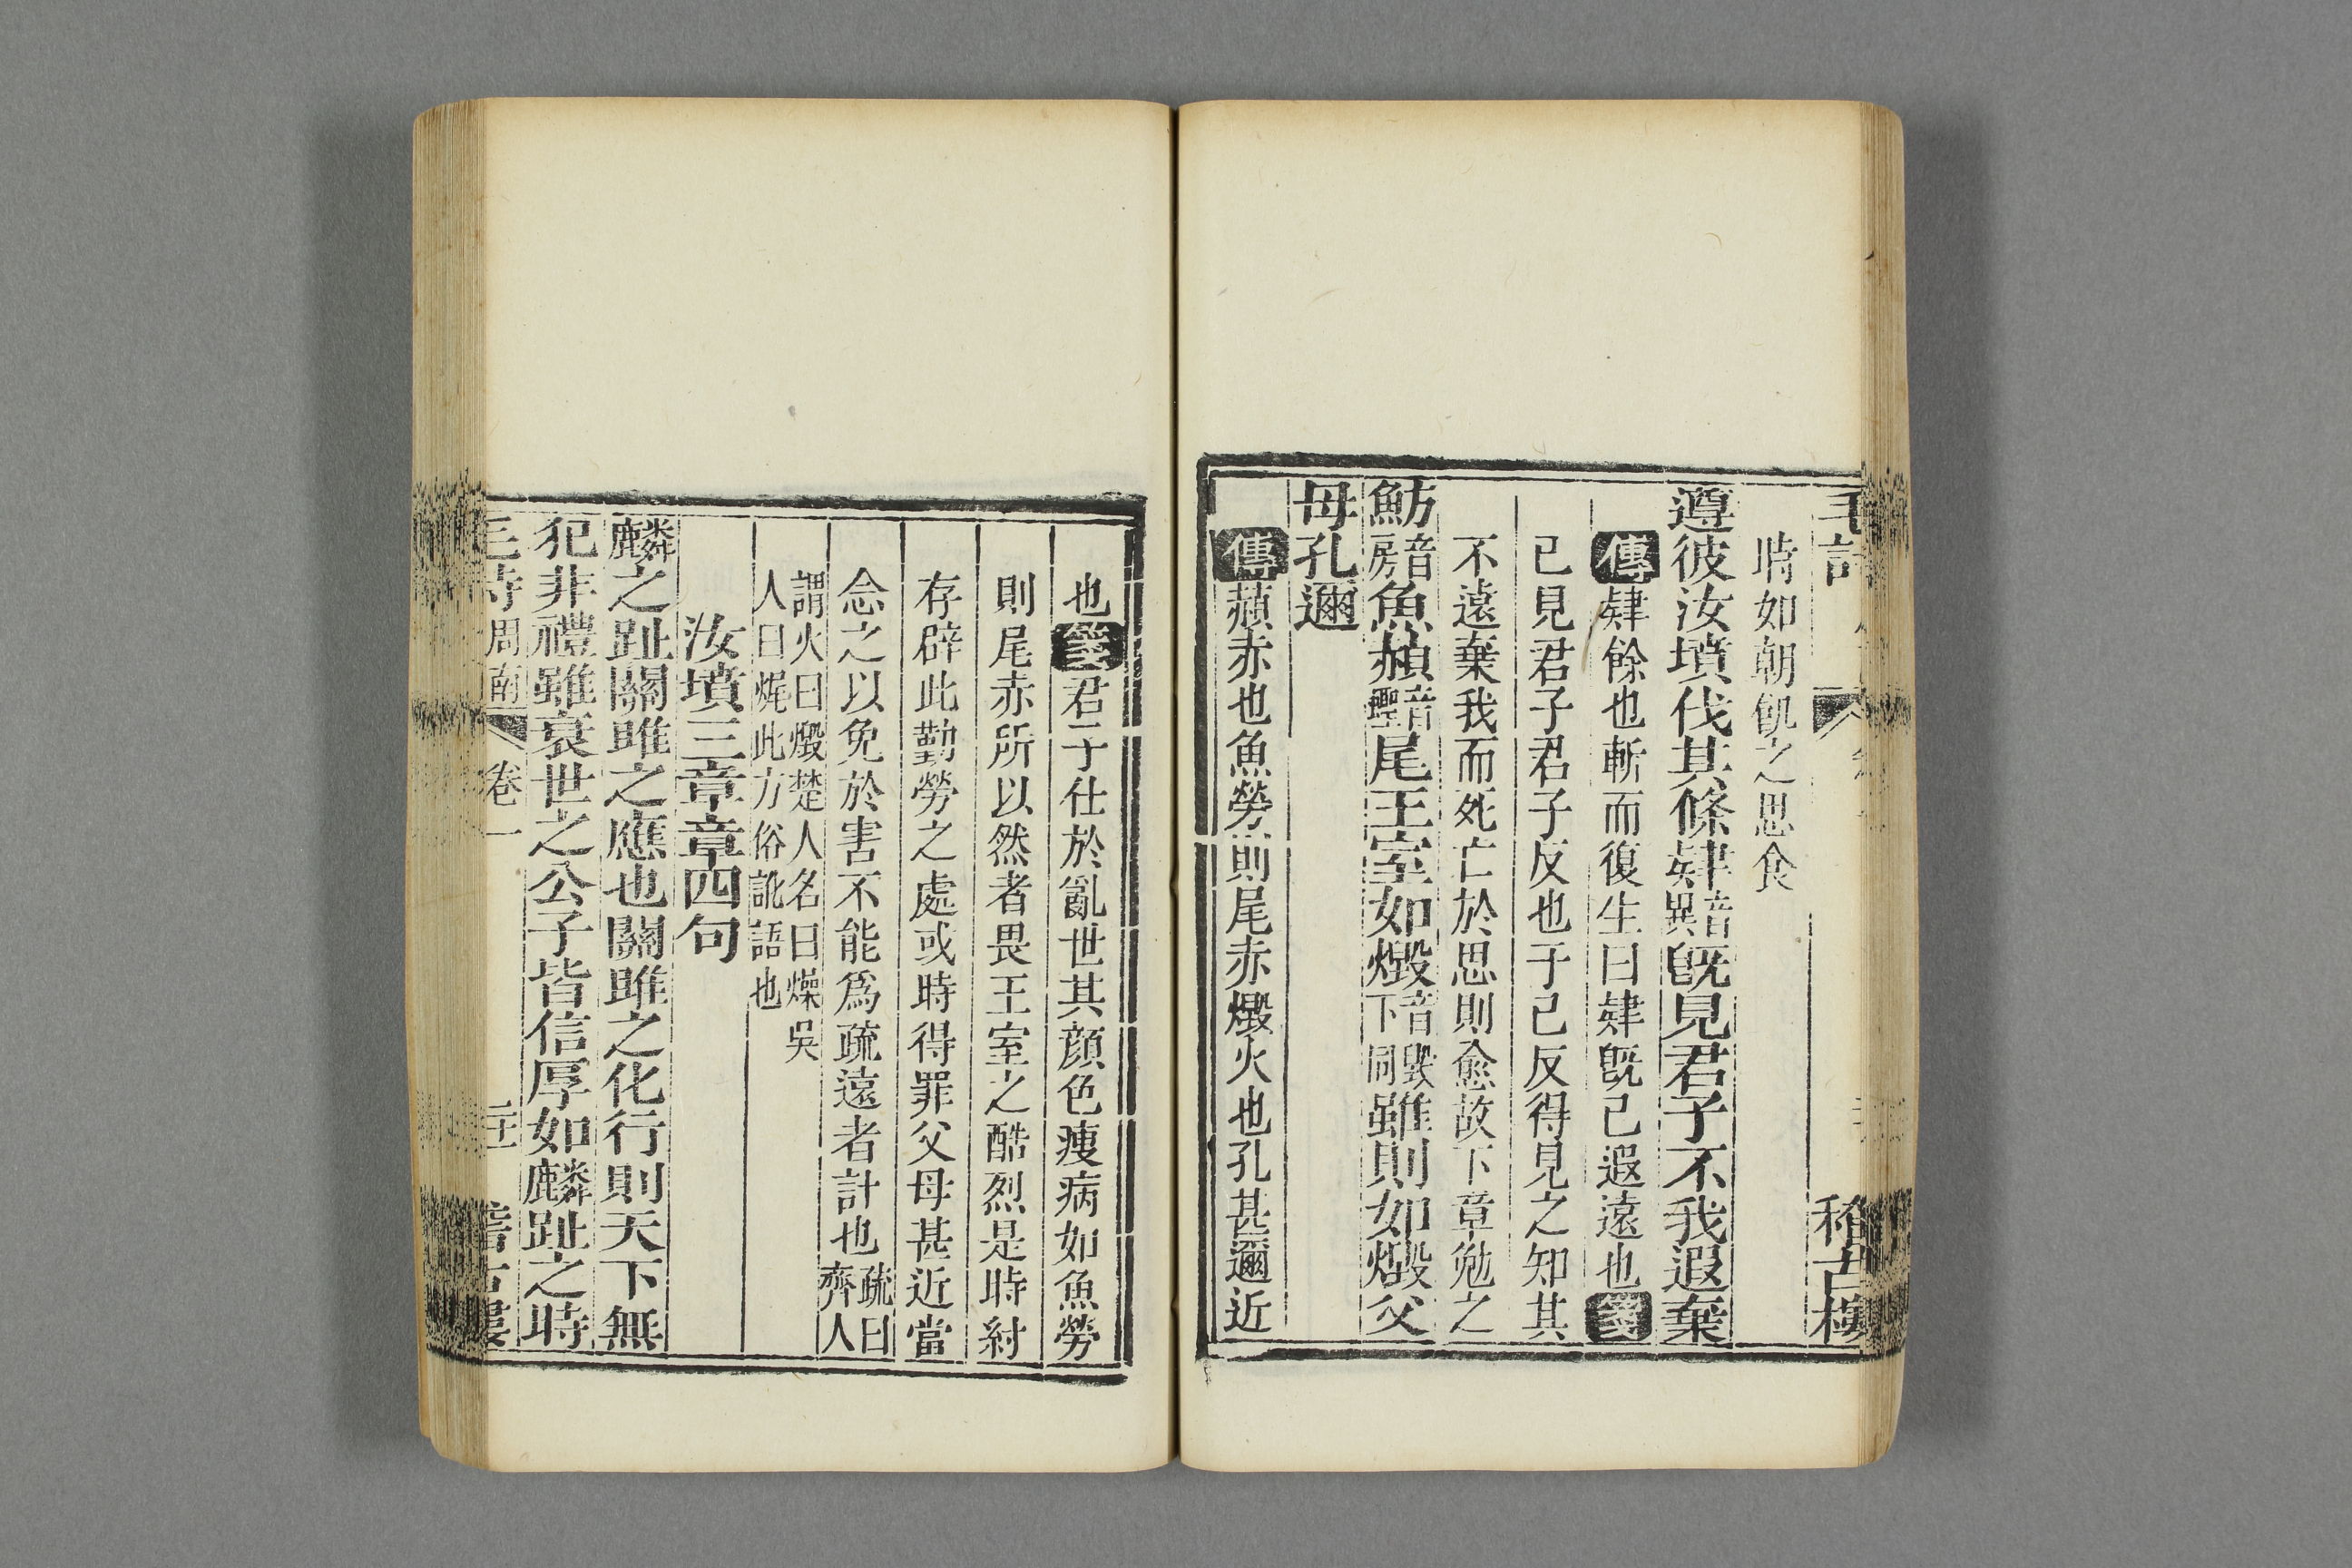 毛詩
稽古樓
時如朝飢之思食
遵彼汝墳伐其條肄音異旣見君子不我遐棄
傳肄餘也斬而復生曰肄旣已遐遠也箋
已見君子君子反也于已反得見之知其
不遠棄我而死亡於思則愈故下章勉之
魴音房魚赬音䞓尾王室如燬音毀下同雖則如燬父
母孔邇
傳赬赤也魚勞則尾赤燬火也孔甚邇近
也箋君子仕於亂世其顔色瘦病如魚勞
則尾赤所以然者畏王室之酷烈是時紂
存辟此勤勞之處或時得罪父母甚近當
念之以免於害不能爲疏遠者計也疏曰齊人
謂火曰燬楚人名曰燥吳
人曰㷄此方俗訛語也
汝墳三章章四句
麟之趾關雎之應也關雎之化行則天下無
犯非禮雖衰世之公子皆信厚如麟趾之時
毛詩周南 卷一 稽古樓